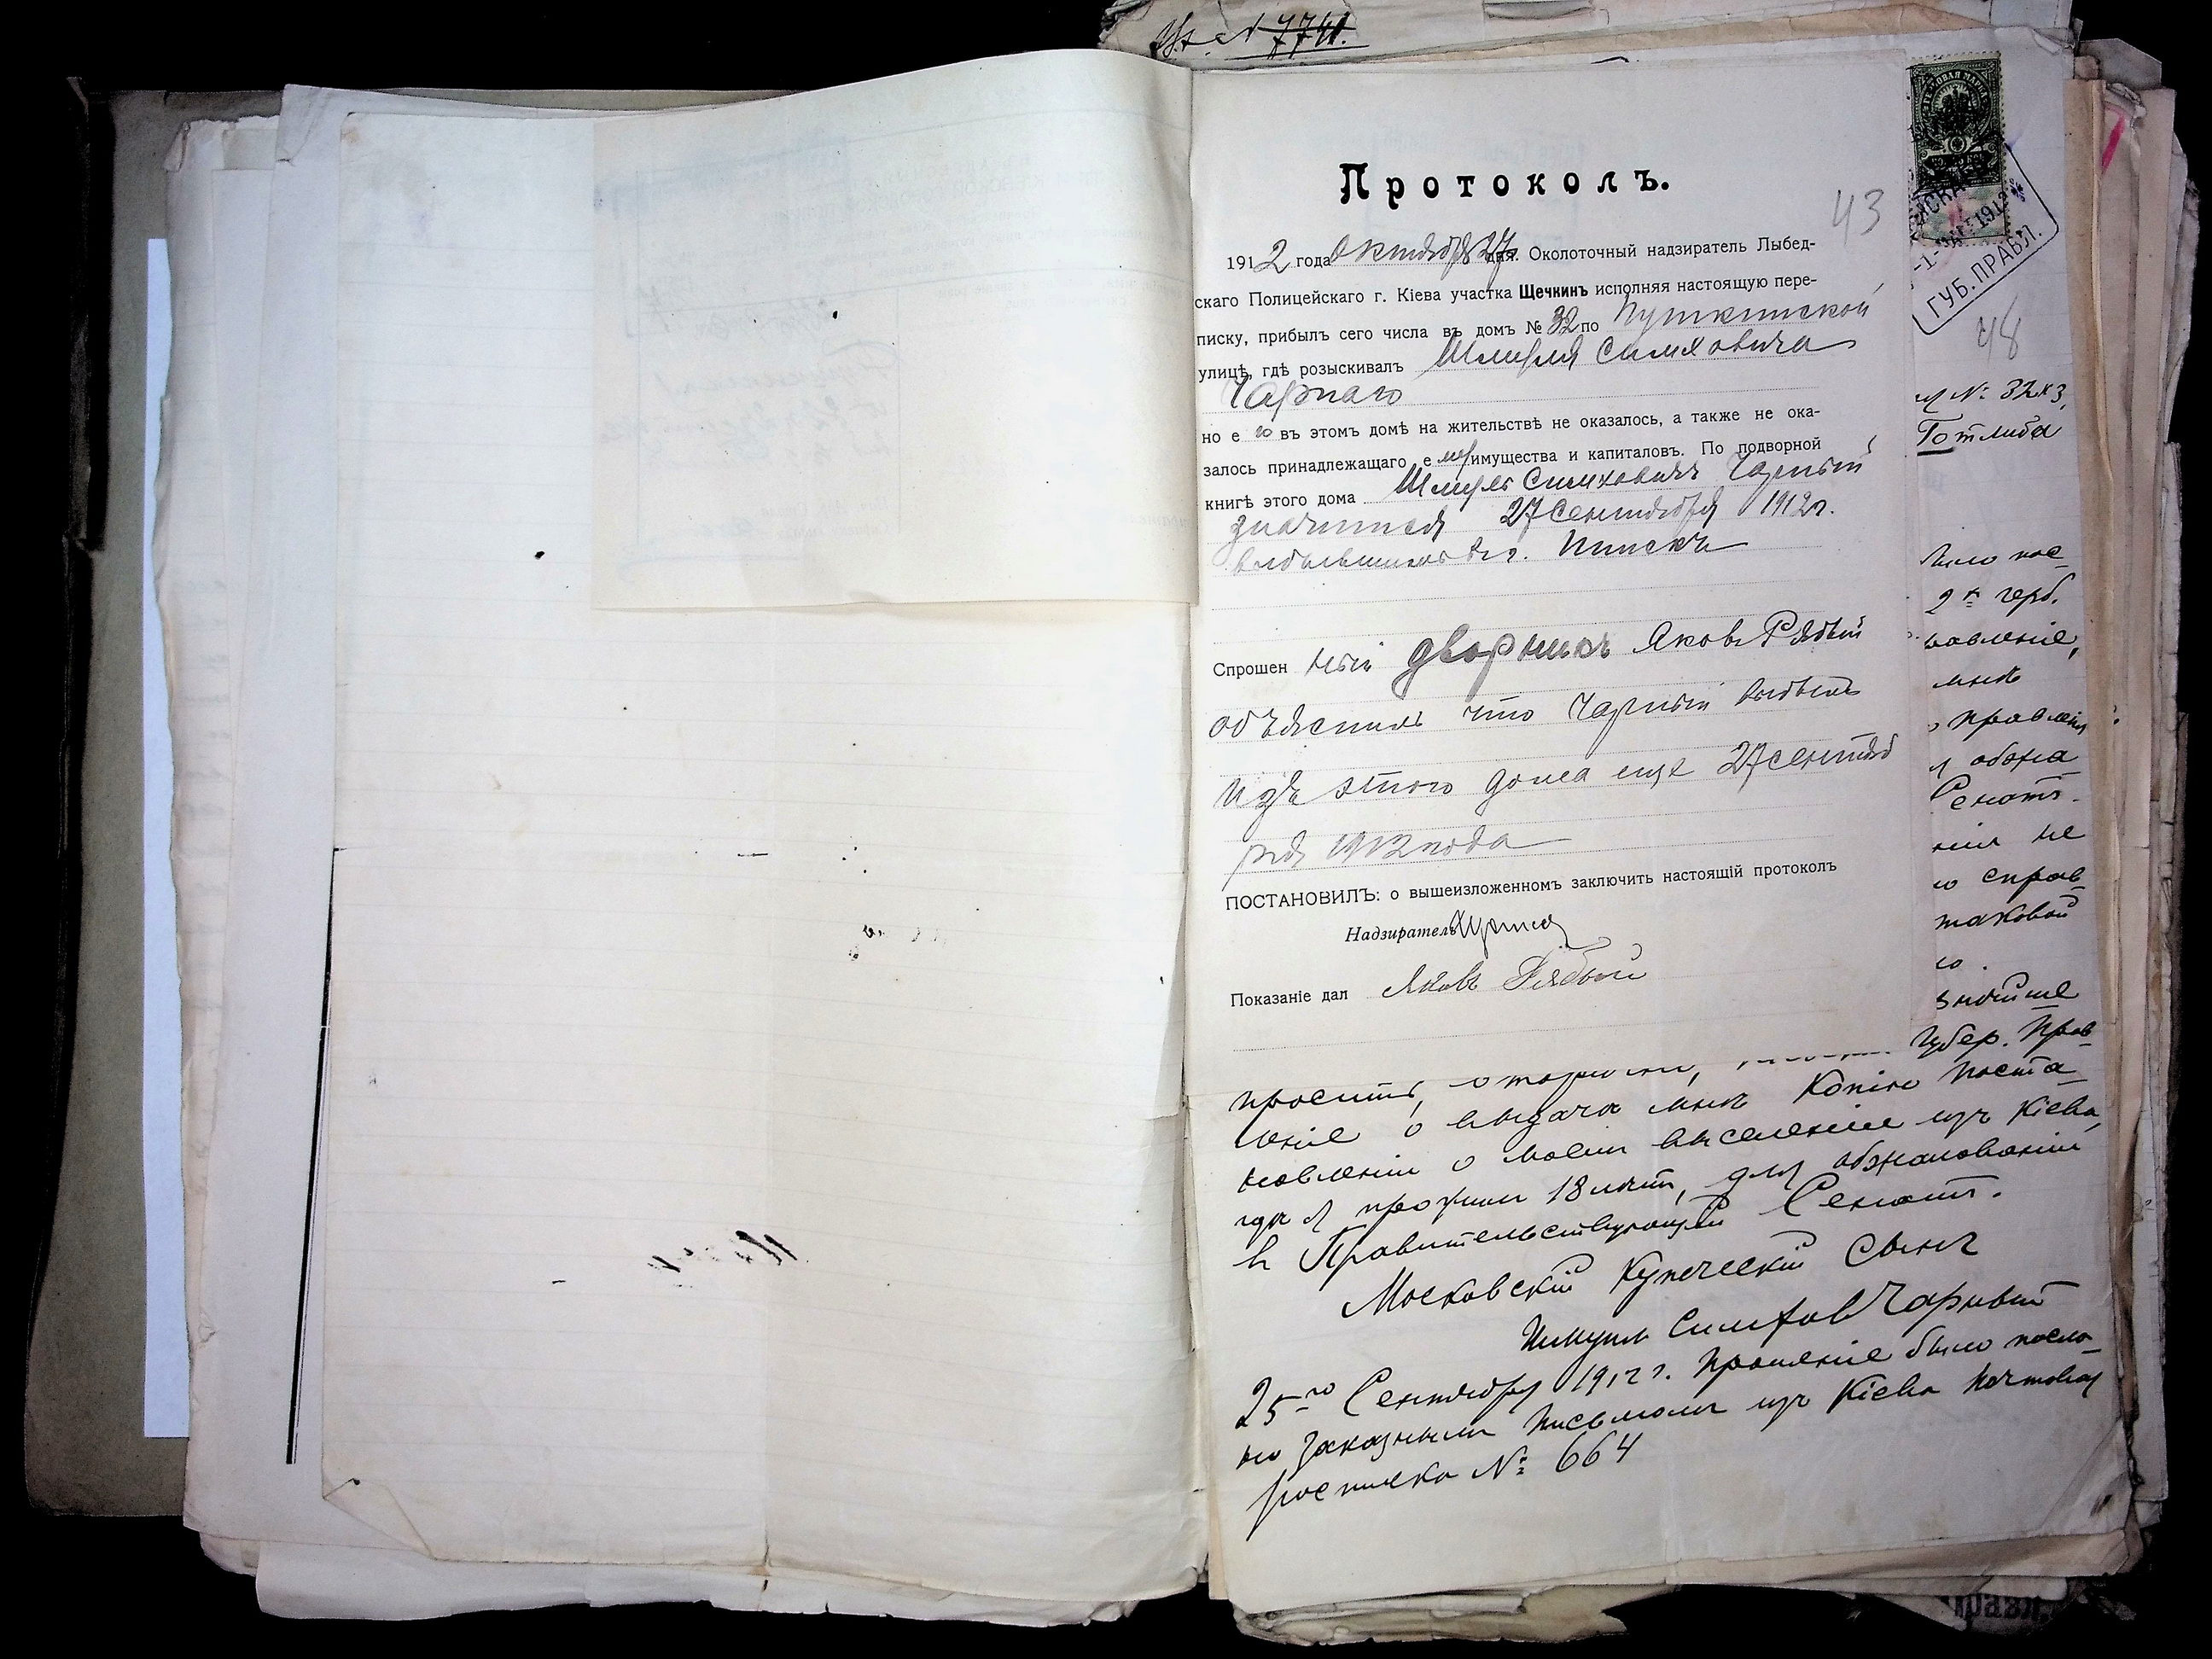 N 7741.
Протоколъ.
43
1912 года Октября 27 дня. Околоточный надзиратель Лыбед-
скаго Полицейскаго г. Кіева участка Щечкинъ исполняя настоящую пере-
писку, прибылъ сего числа въ домъ № 32 по Пушкинской
улицѣ, гдѣ розыскивалъ Шмуля Симховича
Чарнаго
но его въ этомъ домѣ на жительствѣ не оказалось, а также не ока-
залось принадлежащаго ему имущества и капиталовъ. По подворной
книгѣ этого дома Шмуль Симховичъ Чарный
значится 27 Сентября 1912 г.
выбывшимъ въ г. Пинскъ
Спрошенный дворникъ Яковъ Рябый
объяснилъ что Чарный выбылъ
изъ этого дома еще 27 сентяб
ря 1912 года
ПОСТАНОВИЛЪ: о вышеизложенномъ заключить настоящій протоколъ
Надзиратель
Показаніе дал Яковъ Рябый
ГУБ. ПРАВЛ.
48
№ 32 кз,
Готлиба
было пос
2 х герб.
новленіе,
мнѣ
правленія
я обжа
Сенатъ.
нія не
ю справ
таковой
ю.
Губер. Прав
просить,
леніе о выдача мнѣ Копію Поста
новленіи о моем выселеніи изъ Кіева,
гдѣ я прожил 18 лѣтъ, для обжалованіи
в Правительствующій Сенатъ.
Московскій Купеческій Сынъ
Шмуль Симхов Чарный
25го Сентября 1912 г. Прошеніе было посла
но Заказным Письмомъ изъ Кіева Почтовая
росписка № 664